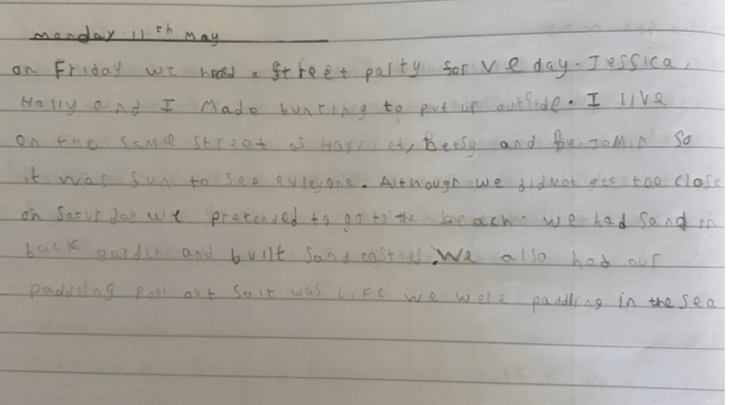 monday 11th may
on Friday we had a street party for VE day. Jessica,
Holly and I Made bunting to put up outside. I live
on the same street as Harriet, Betsy and Benjamin so
it was fun to see everyone. Although we did not get too close
on Saturday we pretended to go to the beach. we had sand in
back garden and built sand castles. We also had our
paddling pool out so it was like we were paddling in the sea